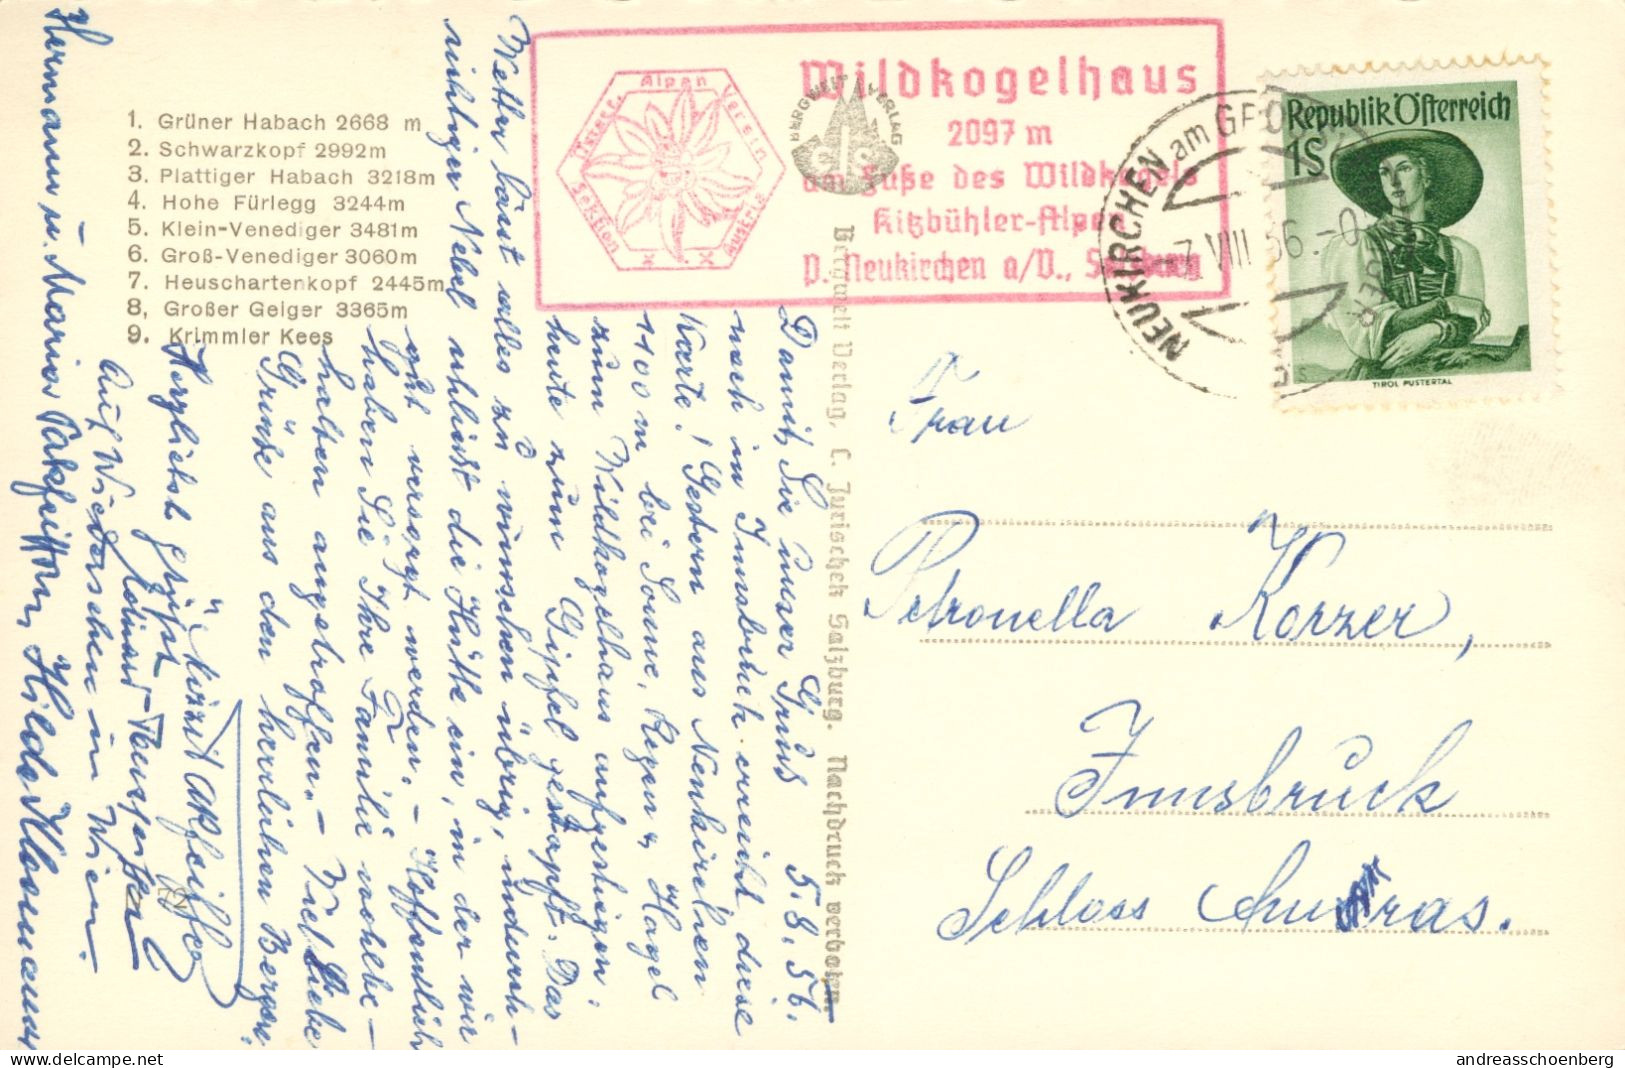 1. Grüner Habach 2668 m
2. Schwarzkopf 2992m
3. Plattiger Habach 3218m
4. Hohe Fürlegg 3244m
5. Klein-Venediger 3481m
6. Groß-Venediger 3060m
7. Heuschartenkopf 2445m
8, Großer Geiger 3365m
9. Krimmler Kees
Österr. Alpen Verein
Sektion Austria
x x
Wildkogelhaus
2097 m
am Fuße des Wildkogels
Kitzbühler-Alpen
P. Neukirchen a/V., Salzburg
BERGWELT VERLAG
CJS
NEUKIRCHEN am GRO
-7.VIII 56.-0
Republik Österreich
1S
TIROL PUSTERTAL
5.8.56.
Damit Sie unser Gruß
noch in Innsbruck erreicht diese
Karte! Gestern aus Neukirchen
1100 m bei Sonne, Regen u. Hagel
zum Wildkogelhaus aufgestiegen.
heute zum Gipfel gestapft. Das
Wetter lässt alles zu wünschen übrig, undurch-
sichtiger Nebel schließt die Hütte ein, in der wir
gut versorgt werden. - Hoffentlich
haben Sie Ihre Familie wohlbe-
halten angetroffen. - Viel Liebe
Grüße aus den herrlichen Bergen.
Herzlich grüßt
Auf Wiedersehen in Wien
Hermann u. Hilde
72
Bergwelt Verlag, C. Jurischek Salzburg. Nachdruck verboten.
Frau
Petronella Korzer,
Innsbruck
Schloss Ambras.
delcampe.net
andreasschoenberg